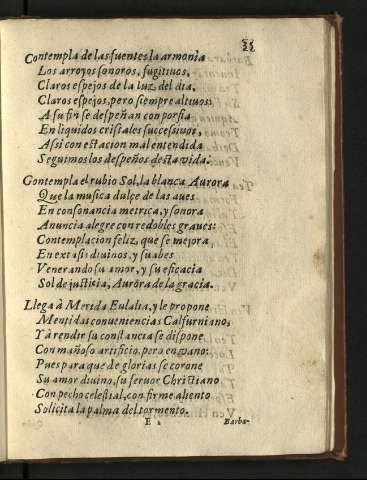 35
Contempla de las fuentes la armonia
Los arroyos ſonoros, fugitiuos,
Claros eſpejos de la luz del dia,
Claros eſpejos, pero ſiempre altiuos:
A ſu fin ſe deſpeñan con porfia
En liquidos criſtales ſucceſsiuos,
Aſsi con eſtacion mal entendida
Seguimos los deſpeños deſta vida.
Gontempla el rubio Sol, la blanca Aurora
Que la muſica dulçe de las aues
En conſonancia metrica, y ſonora
Anuncia alegre con redobles graues:
Contemplacion feliz, que ſe mejora,
En extaſis diuinos, y ſuabes
Venerando ſu amor, y ſu eficacia
Sol de juſticia, Aurora de la gracia.
Llega à Merida Eulalia, y le propone
Mentidas conueniencias Calfurniano,
Ya rendir ſu conſtancia ſe diſpone
Con mañoſo artificio, pero en vano:
Pues para que de glorias ſe corone
Su amor diuino, ſu feruor Chriſtiano
Con pecho celeſtial, con firme aliento
Solicita la palma del tormento.
E 2 Barba-